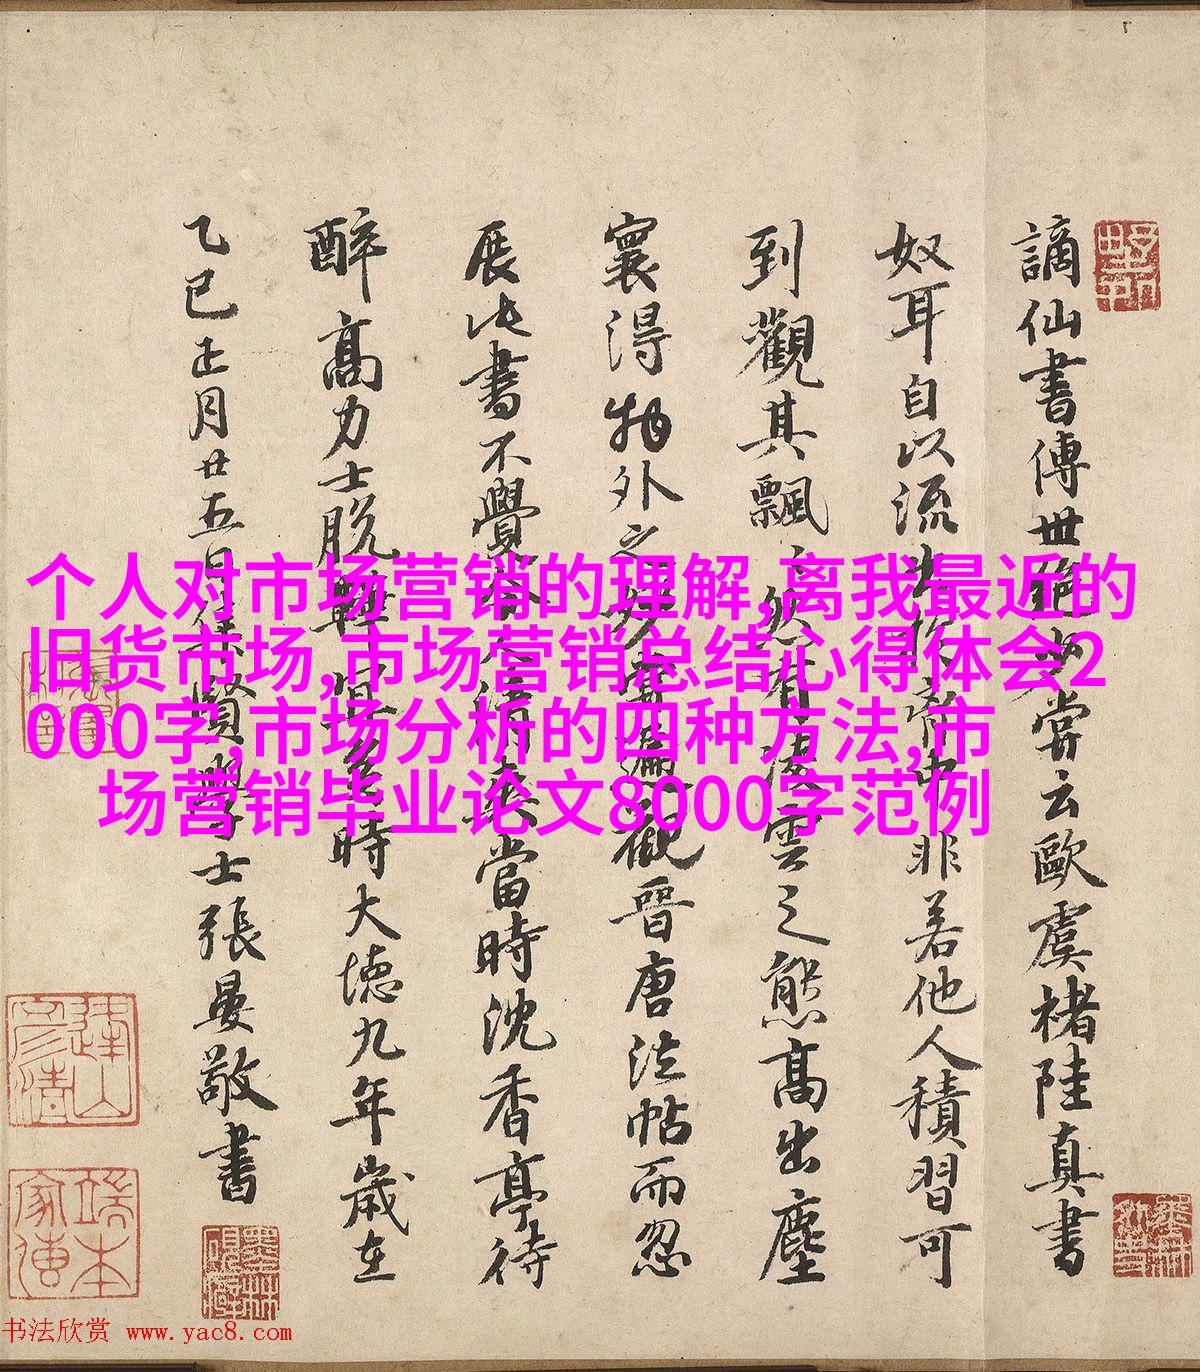 謫仙書傳世絕少嘗云歐虞褚陸真書
奴耳自以流出於中非若他人積習可
到觀其飄々然有凌雲之態高出塵
寰得物外之妙嘗遍觀晉唐法帖而忽
展此書不覺令人清爽當時沈香亭待
醉高力士脫鞾時大德九年歲在
乙巳正月廿五日集賢學士張晏敬書
个人对市场营销的理解,离我最近的
旧货市场,市场营销总结心得体会2
000字,市场分析的四种方法,市
场营销毕业论文8000字范例
书法欣赏 www.yac8.com